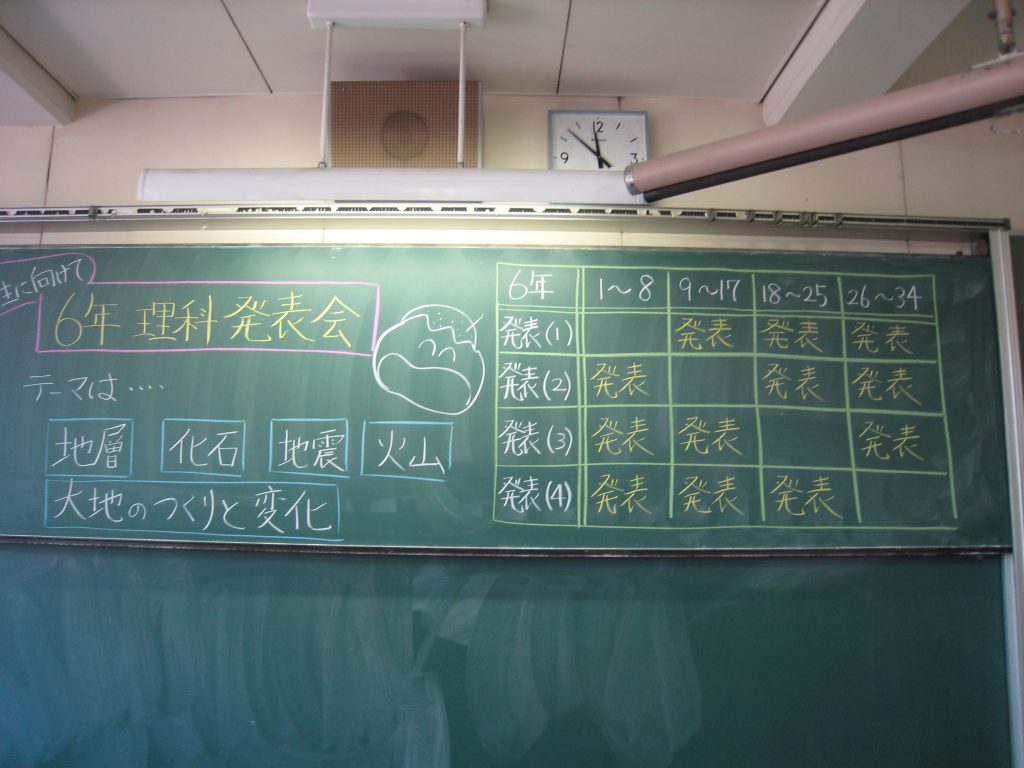 に向けて
6年 理科 発表会
テーマは‥‥
地層 化石 地震 火山
大地のつくりと変化
6年 1〜8 9〜17 18〜25 26〜34
発表(1) 発表 発表 発表
発表(2) 発表 発表 発表
発表(3) 発表 発表 発表
発表(4) 発表 発表 発表
12
9 3